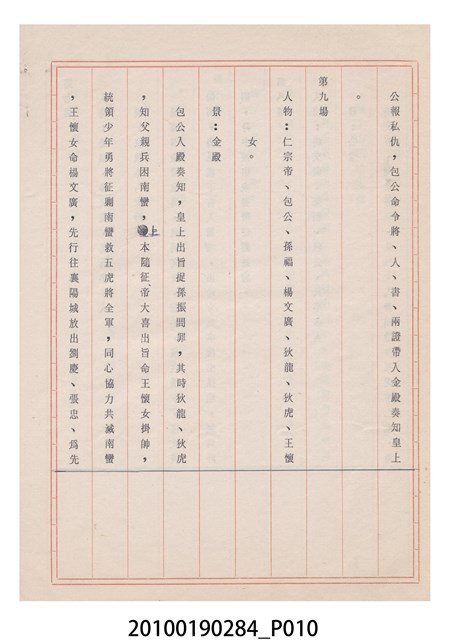 公報私仇，包公命令將、人、書、兩證帶入金殿奏知皇上
。
第九場
人物：仁宗帝、包公、孫福、楊文廣、狄龍、狄虎、王懷
女。
景：金殿
包公入殿奏知，皇上出旨捉孫振問罪，其時狄龍、狄虎
，知父親兵困南蠻，上本隨征、帝大喜出旨命王懷女掛帥，
統領少年勇將征剿南蠻救五虎將全軍，同心協力共滅南蠻
，王懷女命楊文廣，先行往襄陽城放出劉慶、張忠、為先
20100190284_P010